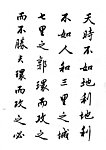 天時不如地利地利
不如人和三里之城
七里之郭環而攻之
而不勝夫環而攻之必